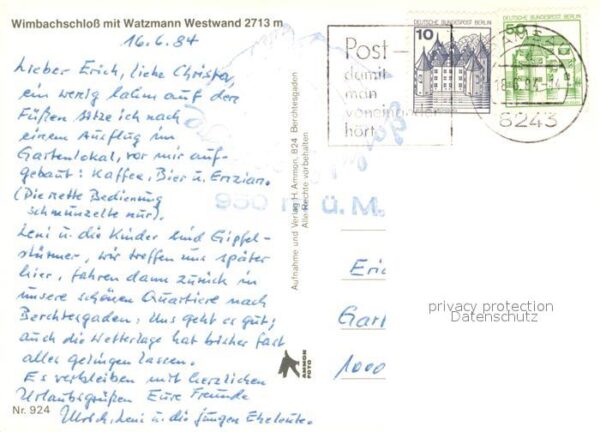 Wimbachschloß mit Watzmann Westwand 2713 m
16.6.84
Lieber Erich, liebe Christa,
ein wenig lahm auf den
Füßen sitze ich nach
einem Ausflug im
Gartenlokal, vor mir auf-
gebaut: Kaffee, Bier u. Enzian.
(Die nette Bedienung
schmunzelte nur).
Leni u. die Kinder sind Gipfel-
stürmer, wir treffen uns später
hier, fahren dann zurück in
unsere schönen Quartiere nach
Berchtesgaden. Uns geht es gut;
auch die Wetterlage hat bisher fast
alles gelingen lassen.
Es verbleiben mit herzlichen
Urlaubsgrüßen Eure Freunde
Leni u. die jungen Eheleute.
Nr. 924
Aufnahme und Verlag H. Ammon, 824 Berchtesgaden
Alle Rechte vorbehalten
AMMON
FOTO
Post-
damit
man
voneinander
hört
DEUTSCHE BUNDESPOST BERLIN
10
DEUTSCHE BUNDESPOST BERLIN
50
18.6.84
8243
950 m ü. M.
Eric
Gart
1000
privacy protection
Datenschutz